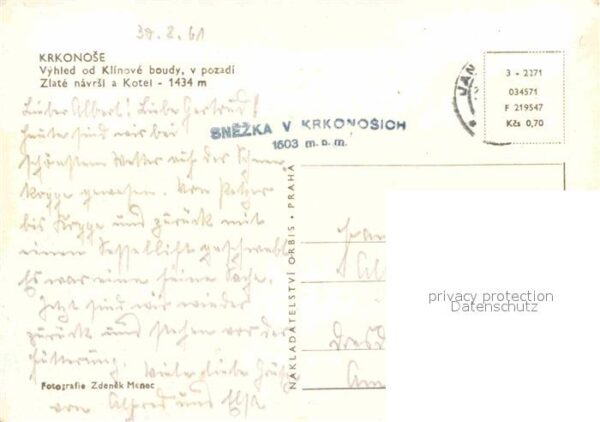 30. 8. 61
KRKONOŠE
Výhled od Klínové boudy, v pozadí
Zlaté návrší a Kotel - 1434 m
Lieber Albert! Liebe Gertrud!
Heute sind wir bei
schönstem Wetter auf der Schnee-
koppe gewesen. Von Petzer
bis Koppe und zurück mit
einem Sessellift geschwebt.
Es war eine feine Sache.
Jetzt sind wir wieder
zurück und stehen vor der
Fütterung. Viele liebe Grüße
von Alfred und Ilse
SNĚŽKA V KRKONOŠÍCH
1603 m. n. m.
JAN
3 - 2271
034571
F 219547
Kčs 0,70
NAKLADATELSTVÍ ORBIS • PRAHA
Dresd
Am
privacy protection
Datenschutz
Fotografie Zdeněk Menec